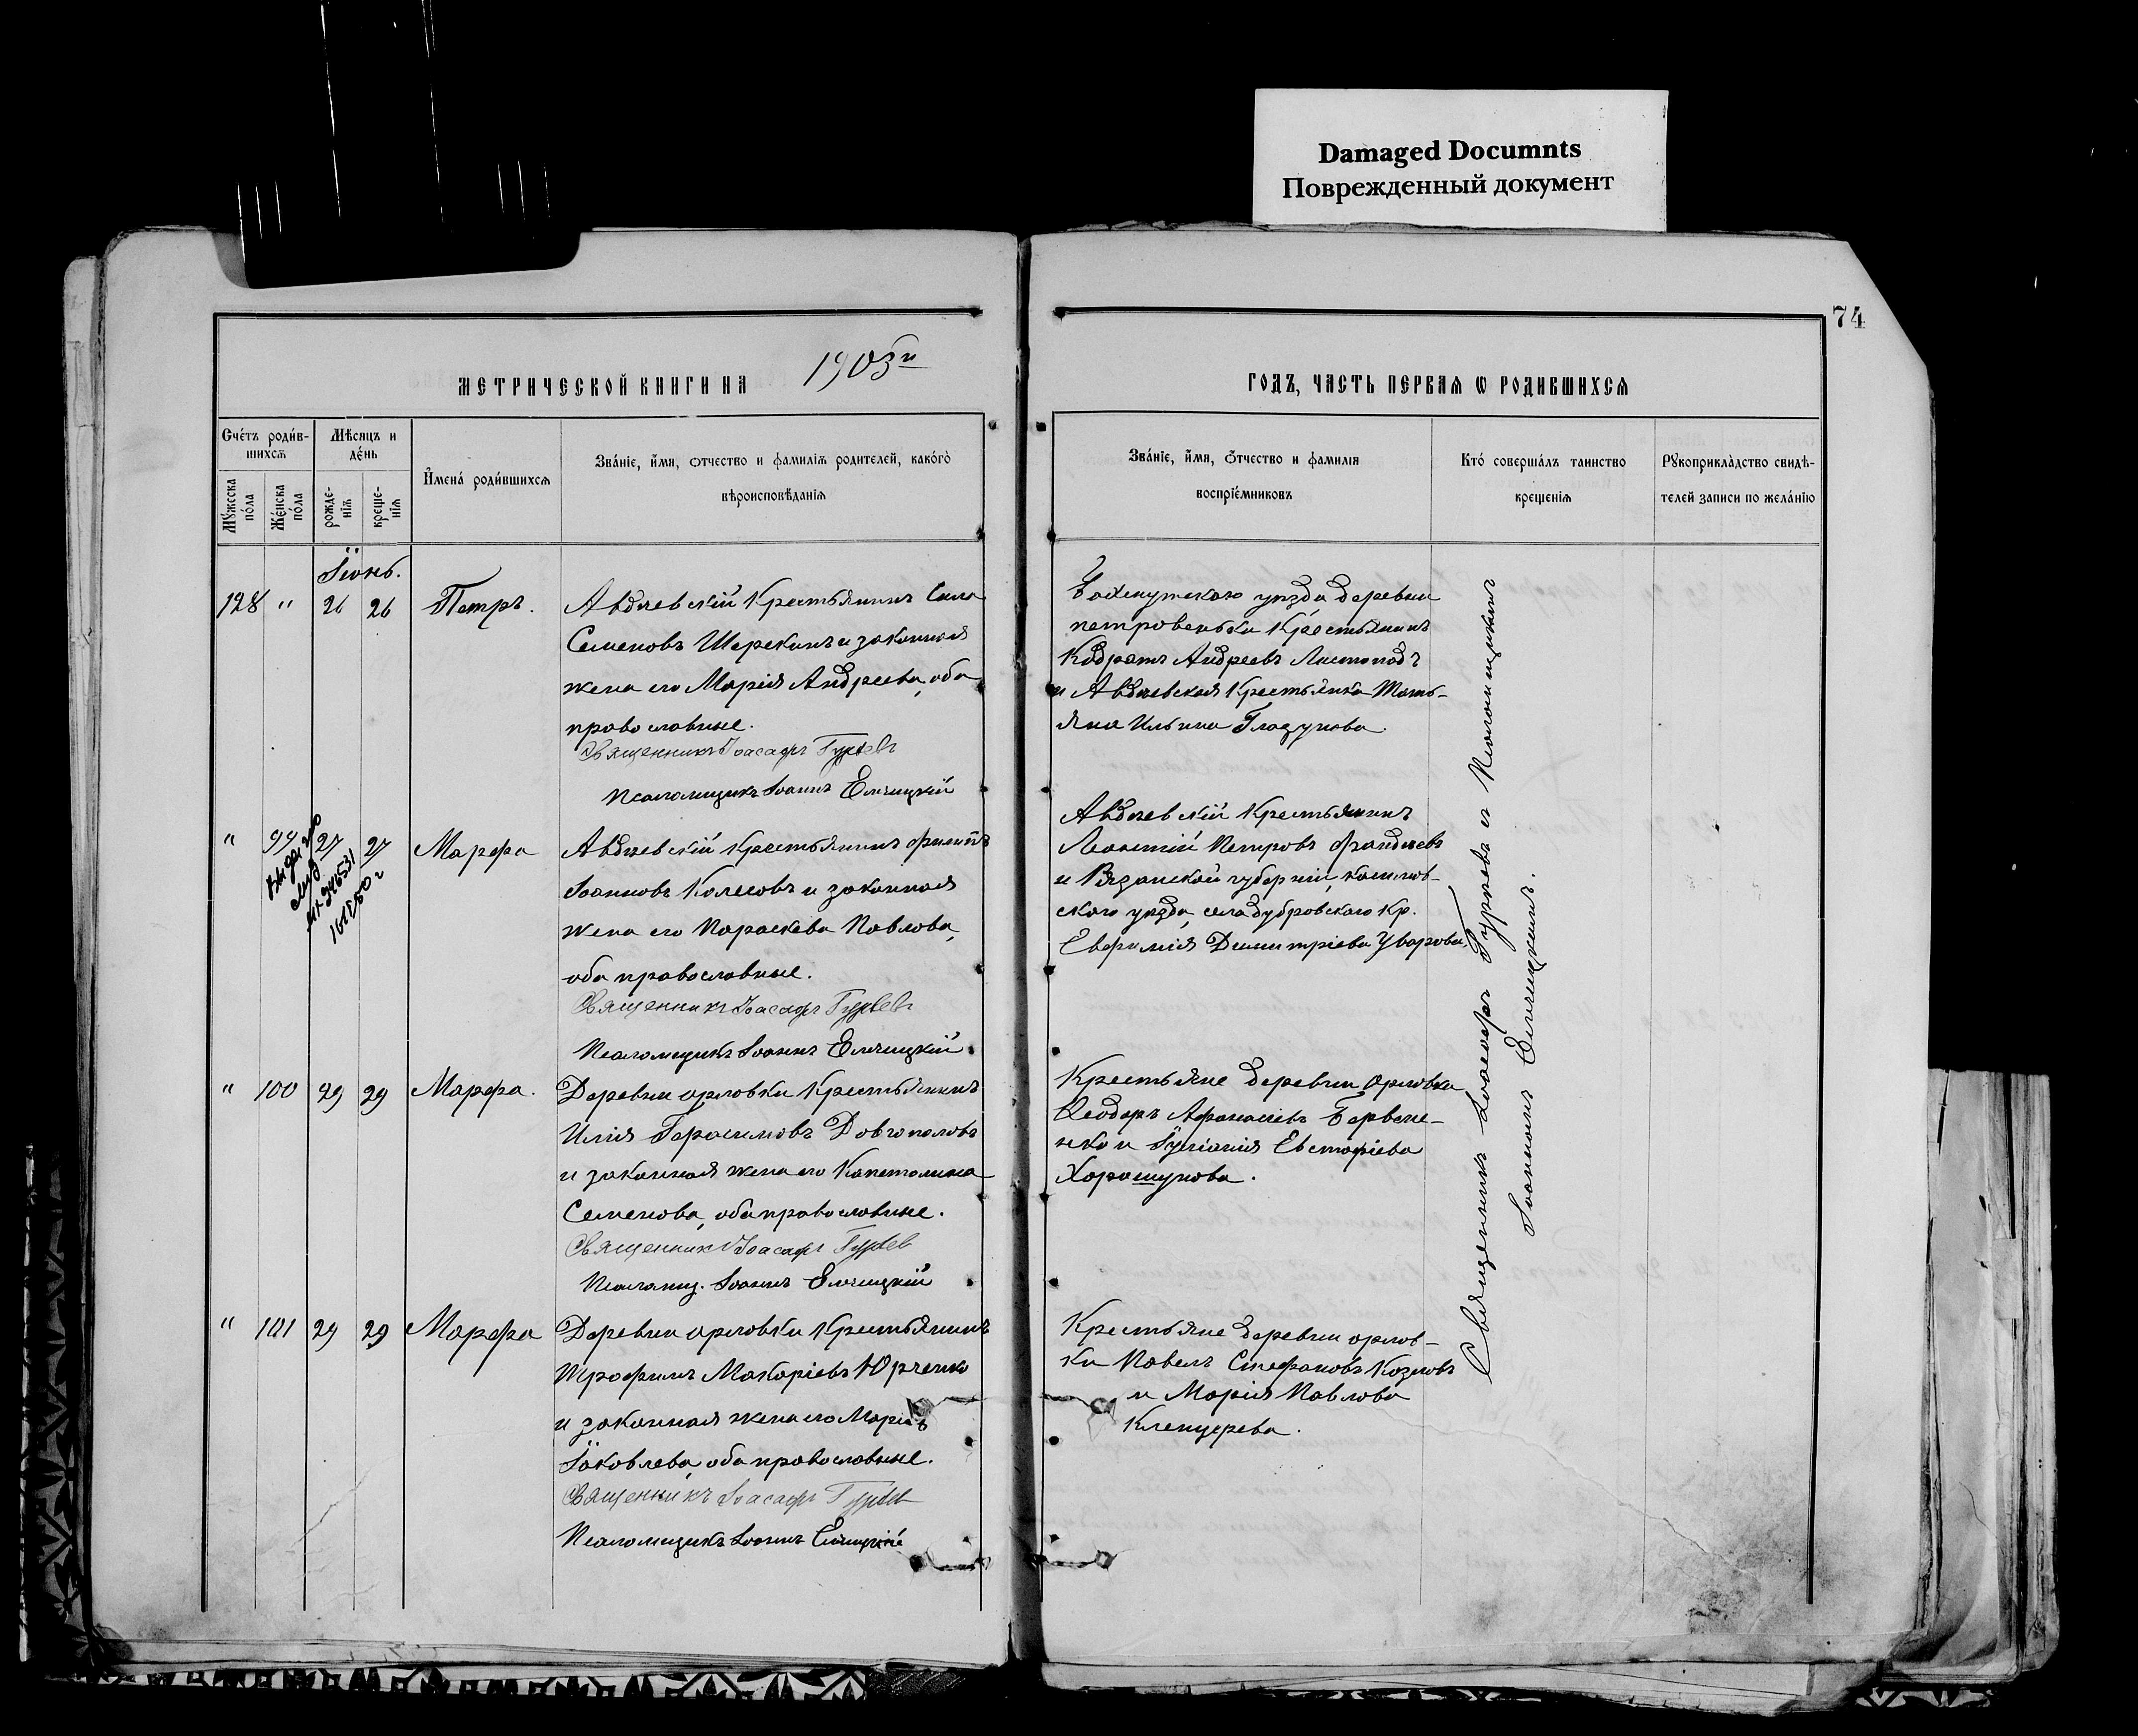 Damaged Documnts
Поврежденный документ
74
МЕТРИЧЕСКОЙ КНИГИ НА 1903й
ГОДЪ, ЧАСТЬ ПЕРВАЯ Ѡ РОДИВШИХСЯ
Счетъ родив-
шихся
Мѣсяцъ и
день
Мужеска
пола
Женска
пола
рожде-
нія
креще-
нія
Имена родившихся
Званіе, имя, отчество и фамилія родителей, какого
вѣроисповѣданія
Званіе, имя, отчество и фамилія
воспріемниковъ
Кто совершалъ таинство
крещенія
Рукоприкладство свидѣ-
телей записи по желанію
Іюнь.
128 " 26 26 Петръ.
Авдѣевскій Крестьянинъ Сила
Семеновъ Шерекинъ и законная
жена его Марія Андреева, оба
православные.
Священникъ Іоасафъ Гурьевъ
Псаломщикъ Іоаннъ Елчицкій
Бахмутскаго уѣзда деревни
петровеньки Крестьянинъ
Кодратъ Андреевъ Листопадъ
и Авдѣевская Крестьянка Тать-
яна Ильина Гладунова.
" 99 27 27 Марфа
Авдѣевскій Крестьянинъ Филиппъ
Іоанновъ Колесовъ и законная
жена его Параскева Павлова,
оба православные.
Священникъ Іоасафъ Гурьевъ
Псаломщикъ Іоаннъ Елчицкій
Авдѣевскій Крестьянинъ
Леонтій Петровъ Фандѣевъ
и Рязанской губерніи, касимов-
скаго уѣзда, села дубровскаго Кр.
Евфимія Димитріева Уварова.
" 100 29 29 Марфа.
Деревни орловки Крестьянинъ
Илія Герасимовъ Довгополовъ
и законная жена его Капетолина
Семенова, оба православные.
Священникъ Іоасафъ Гурьев
Псаломщ. Іоаннъ Елчицкій
Крестьяне деревни Орловки
Ѳеодоръ Афанасіевъ Берве-
нко и Іуліанія Евстафіева
Хорошунова.
" 101 29 29 Марфа
Деревни орловки Крестьянинъ
Трофимъ Макаріевъ Юрченко
и законная жена его Марія
Іаковлева, оба православные.
Священникъ Іоасафъ Гурьев
Псаломщикъ Іоаннъ Елчицкій
Крестьяне деревни орлов-
ки Павелъ Стефановъ Козловъ
и Марія Павлова
Клепцерева.
Священникъ Іоасафъ Гурьевъ съ Псаломщикомъ
Іоанномъ Елчицкимъ.